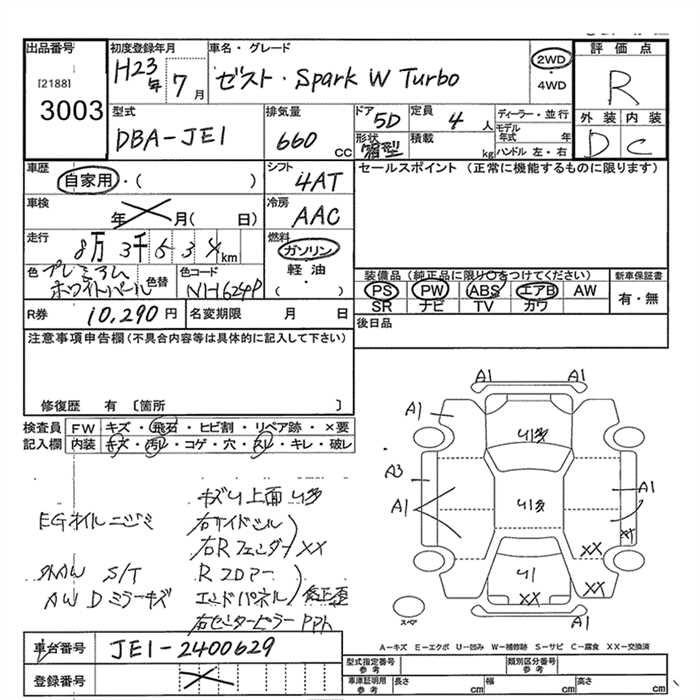 出品番号
[2188]
3003
初度登録年月
H23年 7月
車名・グレード
ゼスト・Spark W Turbo
2WD
・
4WD
評価点
R
外装 内装
D C
型式
DBA-JE1
排気量
660 cc
ドア
5D
形状
箱型
定員
4 人
積載
kg
ディーラー・並行
モデル年式 年
ハンドル 左・右
車歴
自家用・( )
シフト
4AT
セールスポイント (正常に機能するものに限ります)
車検
年 月( 日)
冷房
AAC
走行
8万3千 km
燃料
ガソリン
・
軽油
・
( )
色
プレミアム
ホワイトパール
色替
色コード
NH624P
装備品(純正品に限り○をつけてください)
PS PW ABS エアB AW
SR ナビ TV カワ
新車保証書
有・無
R券
10,290円
名変期限 月 日
後日品
注意事項申告欄(不具合内容等は具体的に記入して下さい)
修復歴 有 〔箇所 〕
検査員 FW キズ・飛石・ヒビ割・リペア跡・×要
記入欄 内装 キズ・汚レ・コゲ・穴・スレ・キレ・破レ
キズU上面U多
EGオイルニジミ
右サイドシル
右Rフェンダー XX
外AW S/T
Rフロアー
AW Dミラーキズ
エンドパネル 修正歪
右センターピラー
A1 A1
A1
U多
A3
A1
U多
A1
XX
XX
U1
XX
XX
A1
スペア
A-キズ E-エクボ U-凹み W-補修跡 S-サビ C-腐食 XX-交換済
車台番号
JE1-2400629
登録番号
型式指定番号
参考
類別区分番号
参考
車庫証明用
参考
長さ cm
幅 cm
高さ cm